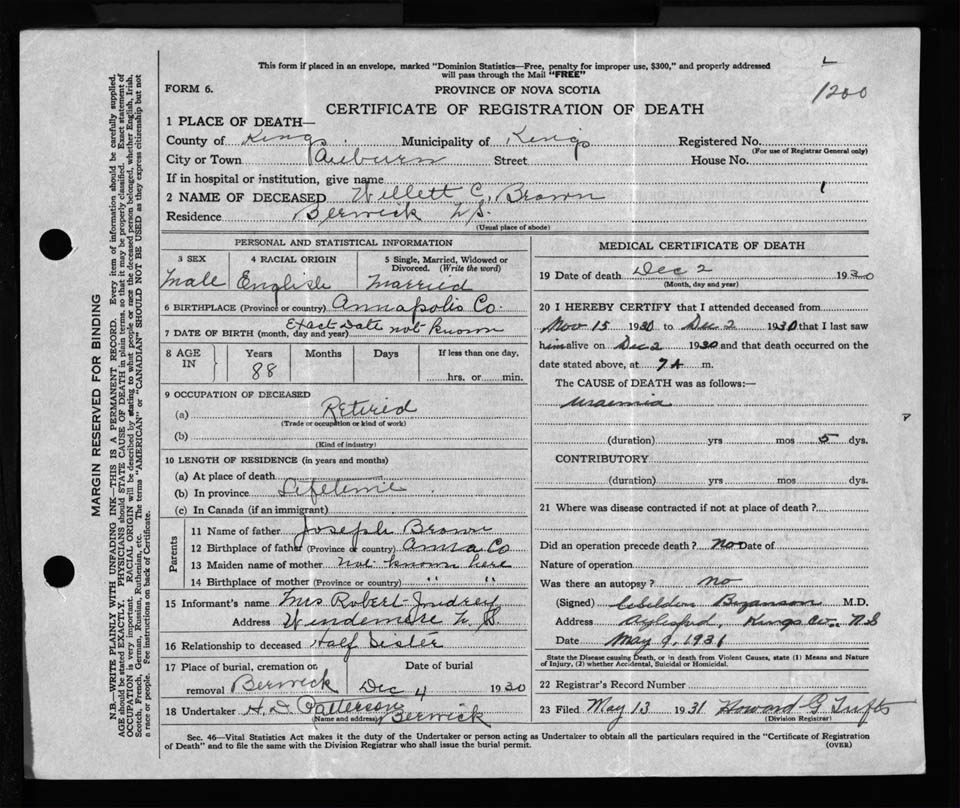 This form if placed in an envelope, marked "Dominion Statistics—Free, penalty for improper use, $300," and properly addressed
will pass through the Mail "FREE"
1200
FORM 6.
PROVINCE OF NOVA SCOTIA
CERTIFICATE OF REGISTRATION OF DEATH
1 PLACE OF DEATH—
County of Kings Municipality of Kings Registered No.
(For use of Registrar General only)
City or Town Auburn Street House No.
If in hospital or institution, give name
2 NAME OF DECEASED Willett C. Brown 1
Residence Berwick N.S.
(Usual place of abode)
PERSONAL AND STATISTICAL INFORMATION
3 SEX 4 RACIAL ORIGIN 5 Single, Married, Widowed or
Divorced. (Write the word)
Male English Married
6 BIRTHPLACE (Province or country) Annapolis Co.
7 DATE OF BIRTH (month, day and year) Exact Date not known
8 AGE IN Years Months Days If less than one day.
88 hrs. or min.
9 OCCUPATION OF DECEASED
(a) Retired
(Trade or occupation or kind of work)
(b)
(Kind of industry)
10 LENGTH OF RESIDENCE (in years and months)
(a) At place of death
(b) In province Lifetime
(c) In Canada (if an immigrant)
Parents
11 Name of father Joseph Brown
12 Birthplace of father (Province or country) Anna Co
13 Maiden name of mother not known here
14 Birthplace of mother (Province or country) " "
15 Informant's name Mrs Robert
Address Windemere N.S.
16 Relationship to deceased Half Sister
17 Place of burial, cremation or Date of burial
removal Berwick Dec 4 1930
18 Undertaker H. D. Patterson
(Name and address) Berwick
MEDICAL CERTIFICATE OF DEATH
19 Date of death Dec 2 1930
(Month, day and year)
20 I HEREBY CERTIFY that I attended deceased from
Nov 15 1930 to Dec 2 1930 that I last saw
him alive on Dec 2 1930 and that death occurred on the
date stated above, at 7 A m.
The CAUSE OF DEATH was as follows:—
uraemia
(duration) yrs mos 5 dys.
CONTRIBUTORY
(duration) yrs mos dys.
21 Where was disease contracted if not at place of death?
Did an operation precede death? no Date of
Nature of operation
Was there an autopsy? no
(Signed) M.D.
Address Aylesford, Kings Co. N.S
Date May 9, 1931
State the Disease causing Death, or in death from Violent Causes, state (1) Means and Nature
of Injury, (2) whether Accidental, Suicidal or Homicidal.
22 Registrar's Record Number
23 Filed May 13 1931 Howard G Tufts
(Division Registrar)
Sec. 46—Vital Statistics Act makes it the duty of the Undertaker or person acting as Undertaker to obtain all the particulars required in the "Certificate of Registration
of Death" and to file the same with the Division Registrar who shall issue the burial permit.
(OVER)
MARGIN RESERVED FOR BINDING
N.B.—WRITE PLAINLY WITH UNFADING INK—THIS IS A PERMANENT RECORD. Every item of information should be carefully supplied.
AGE should be stated EXACTLY. PHYSICIANS should STATE CAUSE OF DEATH in plain terms, so that it may be properly classified. Exact statement of
OCCUPATION is very important. RACIAL ORIGIN will be described by stating to what people or race the deceased person belonged, whether English, Irish,
Scotch, French, German, Russian, Ruthenian, etc. The terms "AMERICAN" or "CANADIAN" SHOULD NOT BE USED as they express citizenship but not
a race or people. Fee instructions on back of Certificate.